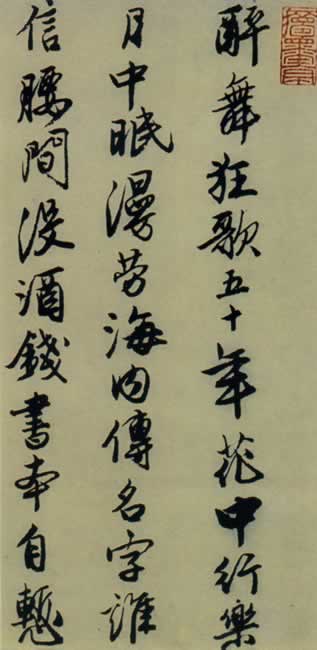 醉舞狂歌五十年花中行樂
月中眠漫劳海内傳名字誰
信腰間没酒錢書本自慙